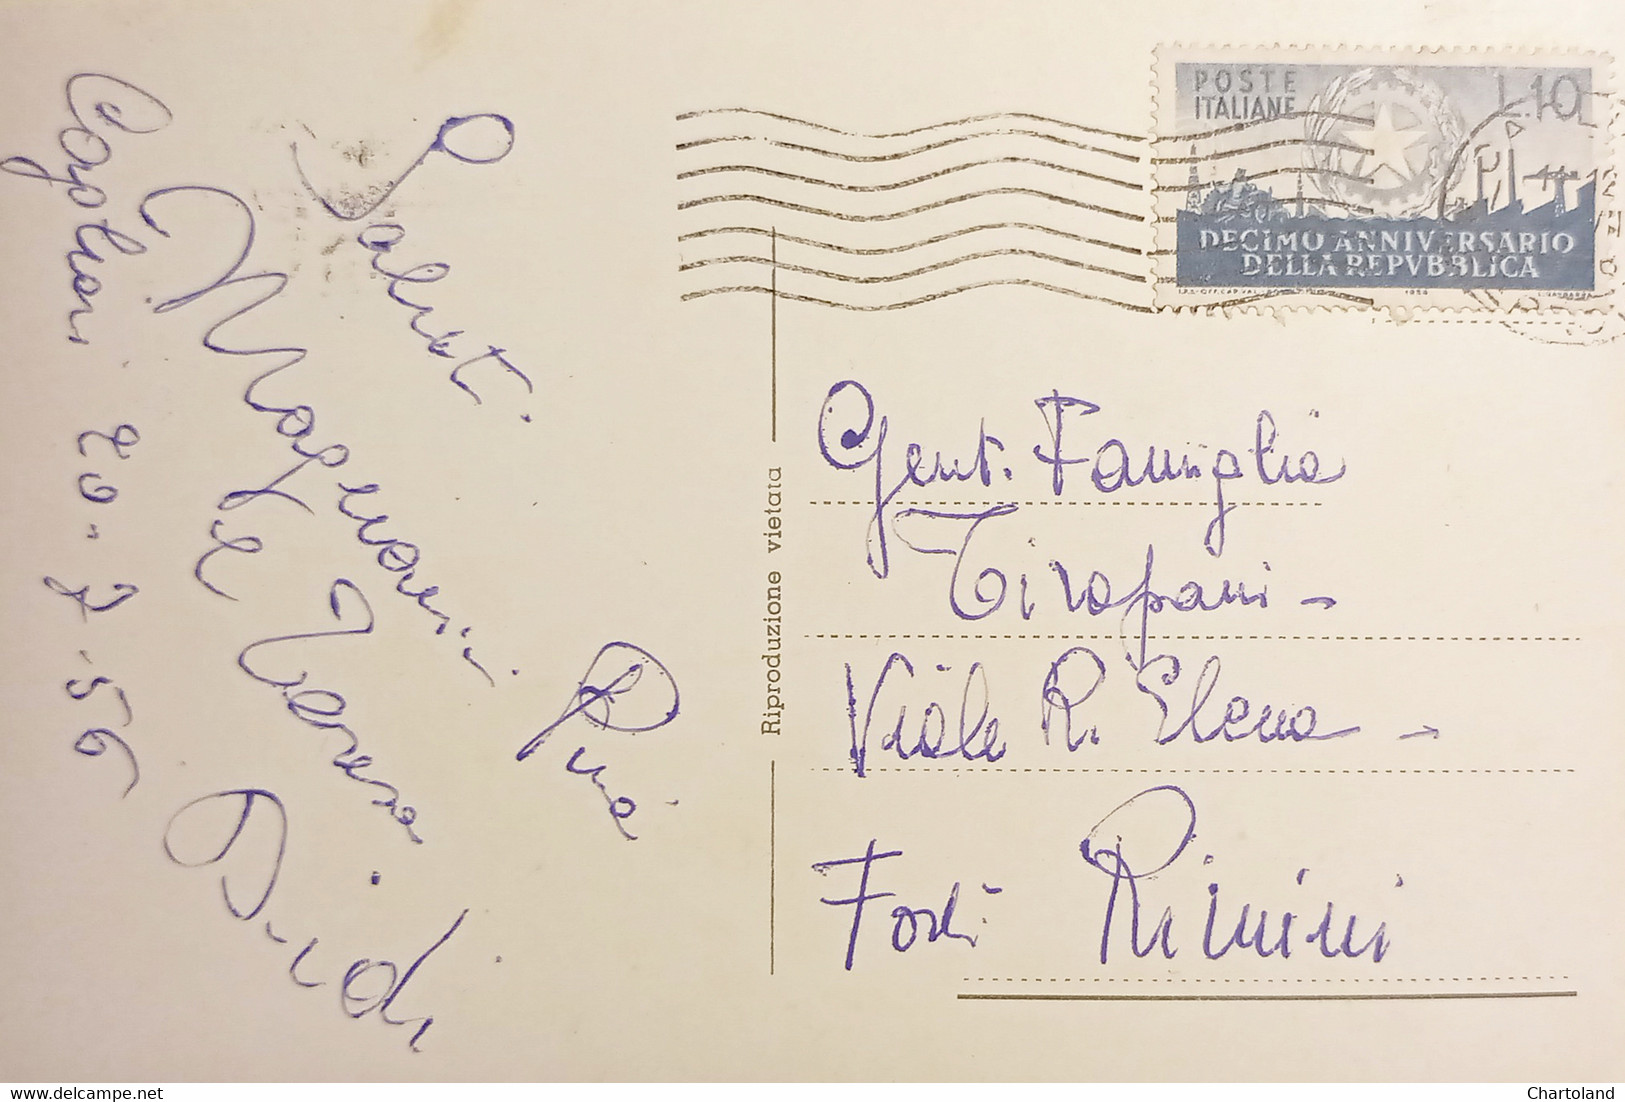 Cagliari 20-7-56
Saluti
Pina
Teresa
POSTE
ITALIANE
L.10
DECIMO ANNIVERSARIO
DELLA REPVBBLICA
1956
Riproduzione vietata
Gent. Famiglia
Tiropani -
Viale R. Elena -
Forlì Rimini
Chartoland
www.delcampe.net